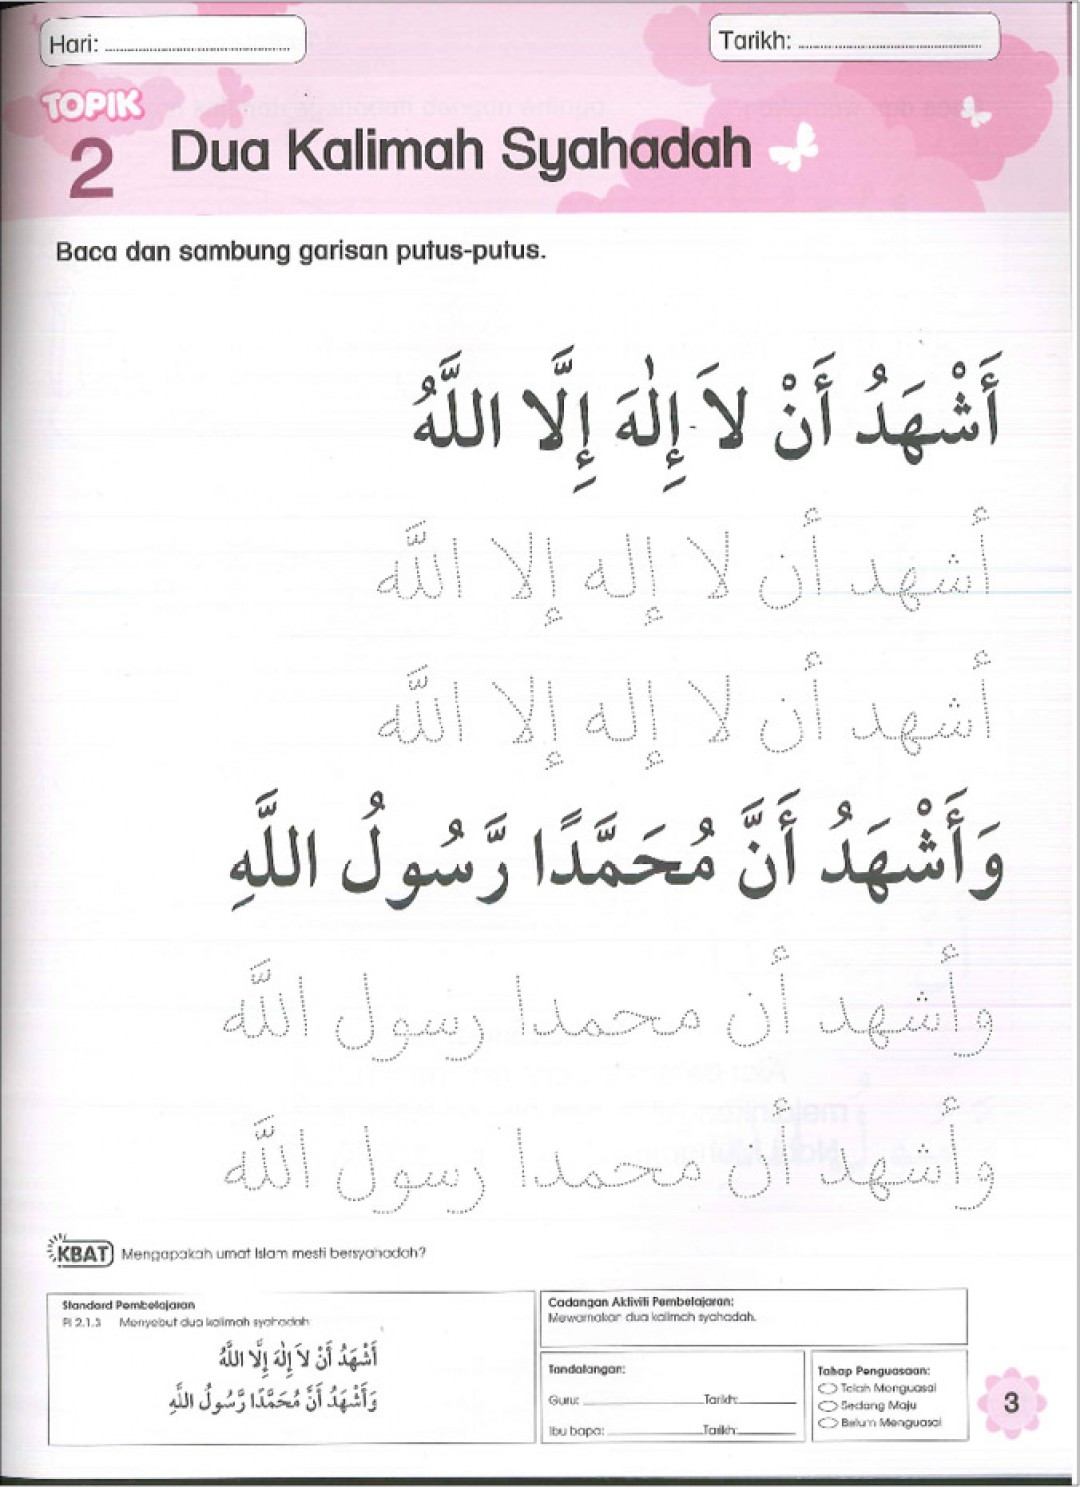 Hari:
Tarikh:
TOPIK
2
Dua Kalimah Syahadah
Baca dan sambung garisan putus-putus.
أَشْهَدُ أَنْ لاَ إِلٰهَ إِلَّا اللَّهُ
أشهد أن لا إله إلا اللّٰه
أشهد أن لا إله إلا اللّٰه
وَأَشْهَدُ أَنَّ مُحَمَّدًا رَّسُولُ اللَّهِ
وأشهد أن محمدا رسول اللّٰه
وأشهد أن محمدا رسول اللّٰه
KBAT Mengapakah umat Islam mesti bersyahadah?
Standard Pembelajaran
PI 2.1.3 Menyebut dua kalimah syahadah
أَشْهَدُ أَنْ لاَ إِلٰهَ إِلَّا اللَّهُ
وَأَشْهَدُ أَنَّ مُحَمَّدًا رَّسُولُ اللَّهِ
Cadangan Aktiviti Pembelajaran:
Mewarnakan dua kalimah syahadah.
Tandatangan:
Guru: Tarikh:
Ibu bapa: Tarikh:
Tahap Penguasaan:
Telah Menguasai
Sedang Maju
Belum Menguasai
3